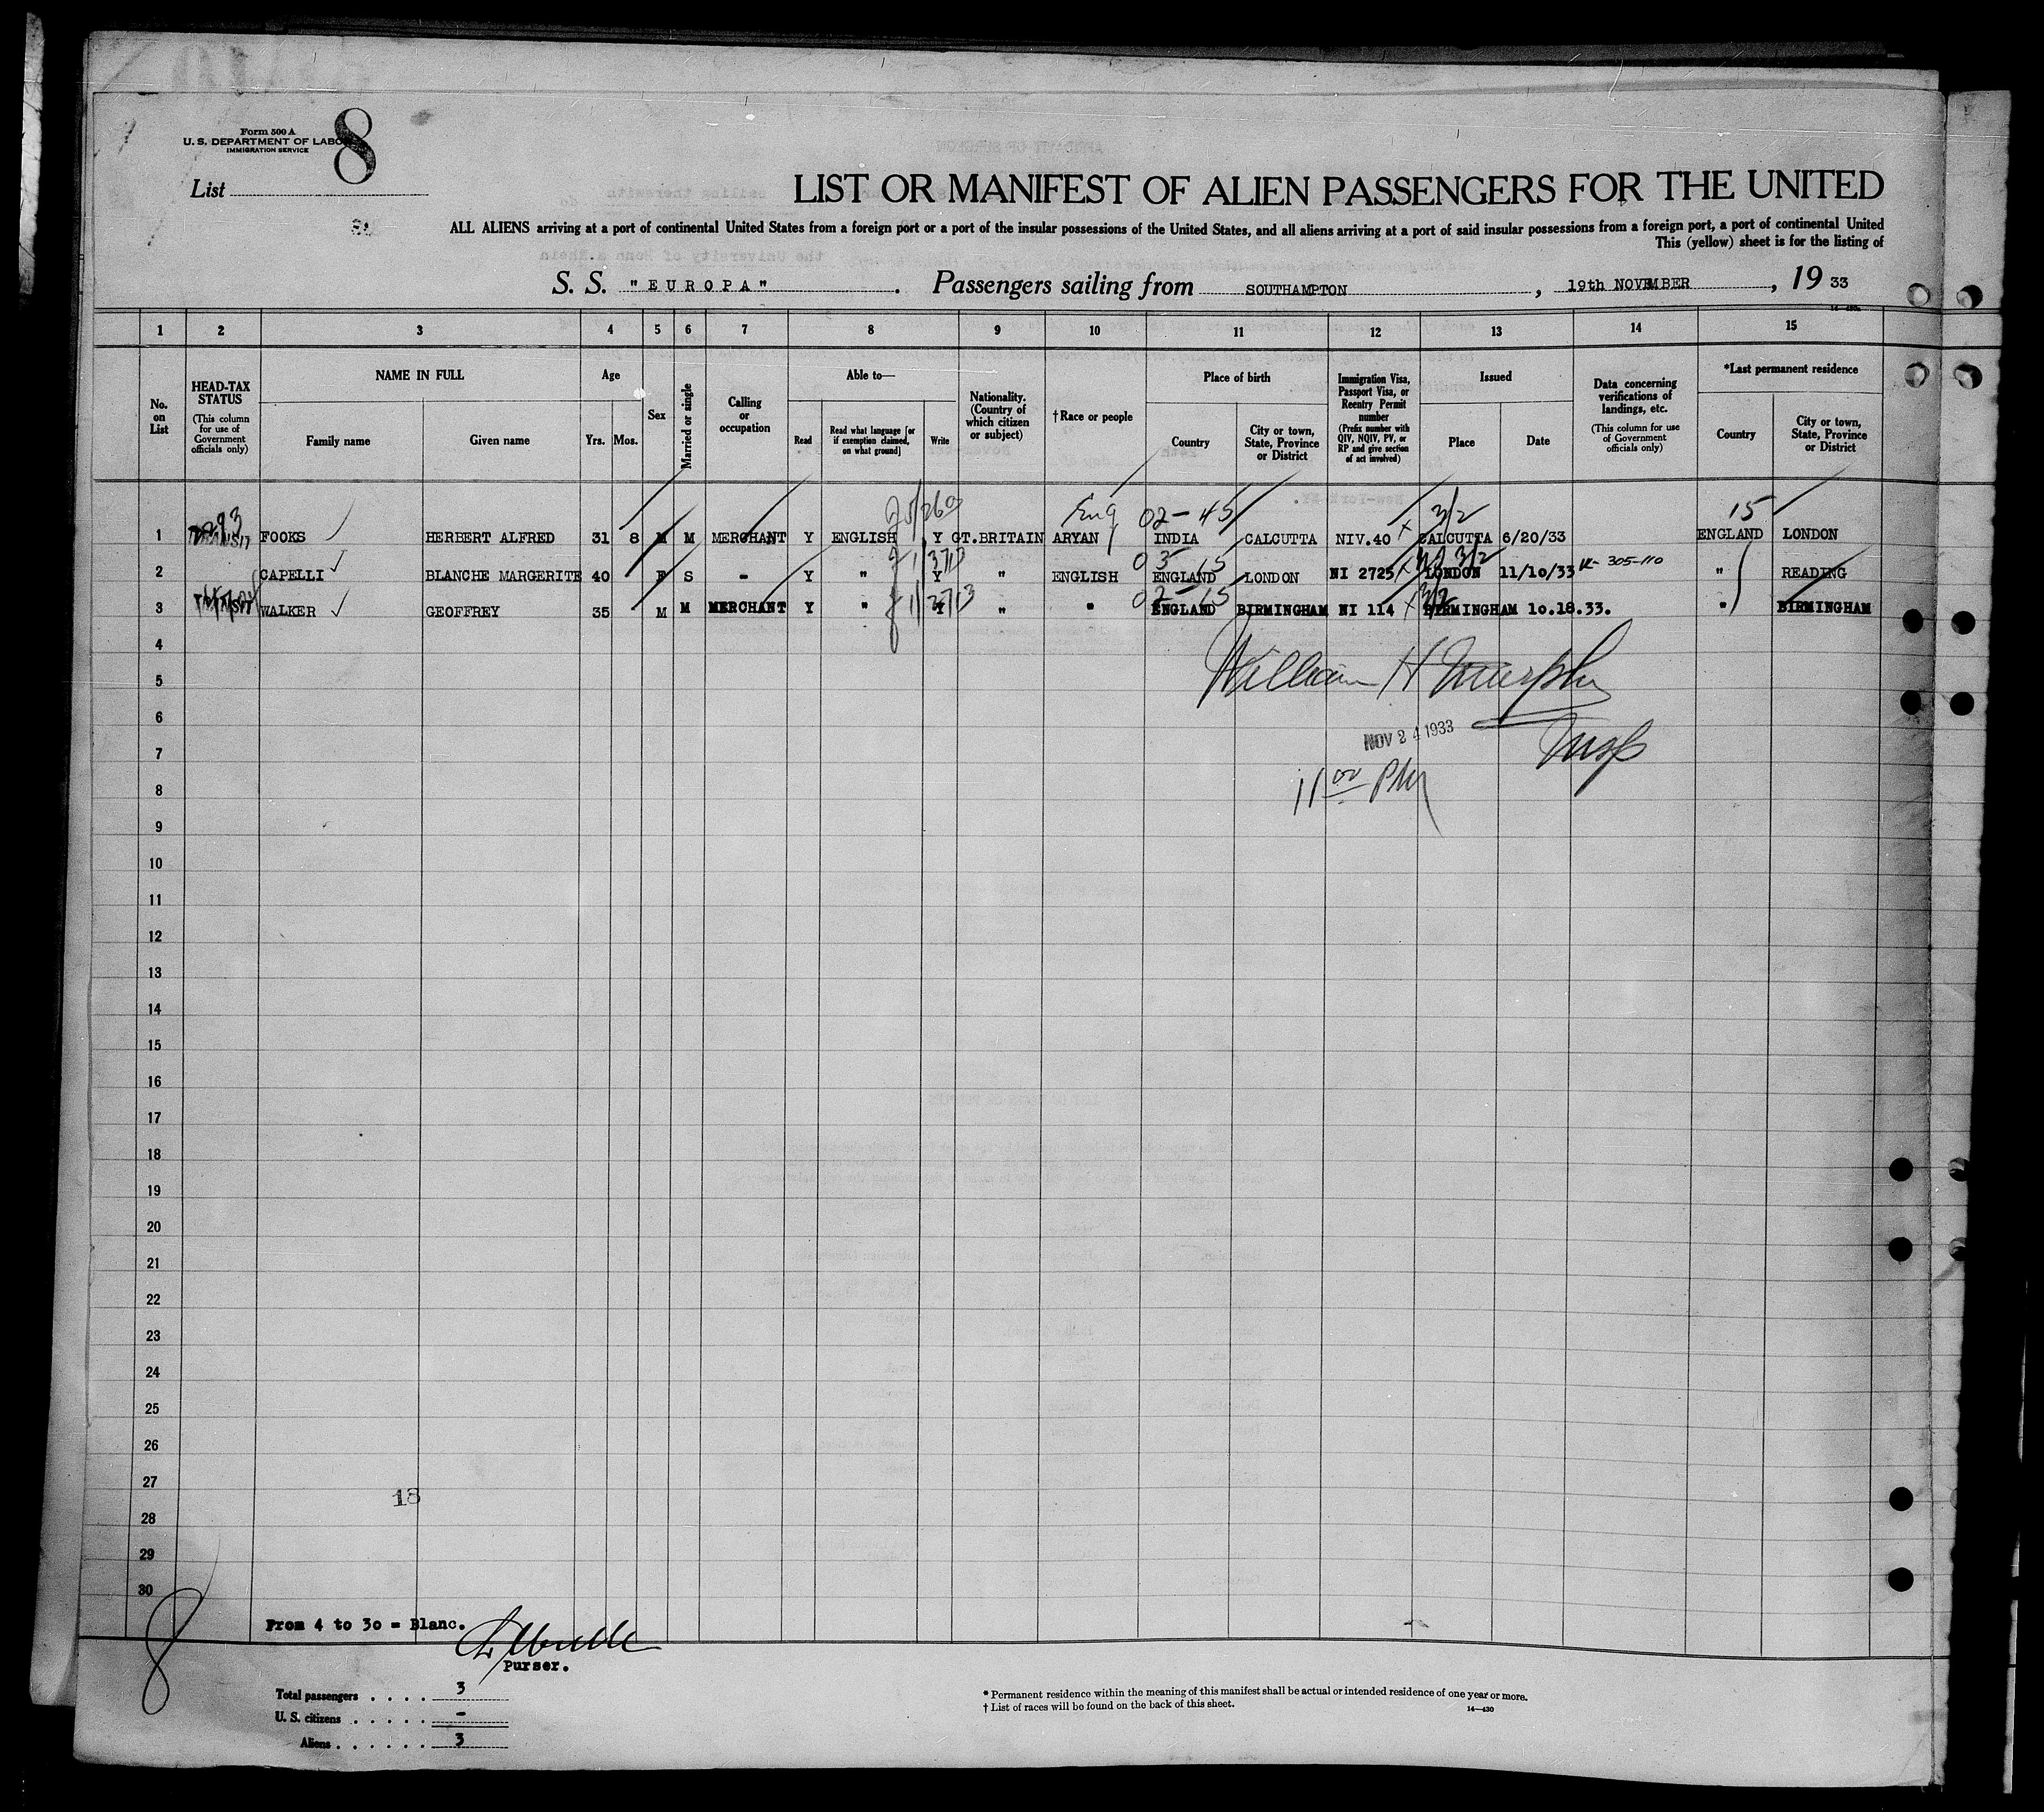 Form 500 A
U. S. DEPARTMENT OF LABOR
IMMIGRATION SERVICE
8
List
LIST OR MANIFEST OF ALIEN PASSENGERS FOR THE UNITED
ALL ALIENS arriving at a port of continental United States from a foreign port or a port of the insular possessions of the United States, and all aliens arriving at a port of said insular possessions from a foreign port, a port of continental United
This (yellow) sheet is for the listing of
S. S. "EUROPA" . Passengers sailing from SOUTHAMPTON , 19th NOVEMBER , 19 33
1 2 3 4 5 6 7 8 9 10 11 12 13 14 15
No. on List
HEAD-TAX STATUS
(This column for use of Government officials only)
NAME IN FULL
Family name
Given name
Age
Yrs. Mos.
Sex
Married or single
Calling or occupation
Able to—
Read
Read what language [or if exemption claimed, on what ground]
Write
Nationality. (Country of which citizen or subject)
†Race or people
Place of birth
Country
City or town, State, Province or District
Immigration Visa, Passport Visa, or Reentry Permit number
(Prefix number with QIV, NQIV, PV, or RP and give section of act involved)
Issued
Place
Date
Data concerning verifications of landings, etc.
(This column for use of Government officials only)
*Last permanent residence
Country
City or town, State, Province or District
Eng 02-45 3/2 15
1 TRANSIT FOOKS HERBERT ALFRED 31 8 M M MERCHANT Y ENGLISH Y GT.BRITAIN ARYAN INDIA CALCUTTA NIV.40 CALCUTTA 6/20/33 ENGLAND LONDON
2 CAPELLI BLANCHE MARGERITE 40 F S - Y " Y " ENGLISH ENGLAND LONDON NI 2725 LONDON 11/10/33 305-110 " READING
3 TRANSIT WALKER GEOFFREY 35 M M MERCHANT Y " Y " " ENGLAND BIRMINGHAM NI 114 BIRMINGHAM 10.18.33. " BIRMINGHAM
4
5 William H Murphy
6
7 NOV 24 1933 Insp
8 11 00 PM
9
10
11
12
13
14
15
16
17
18
19
20
21
22
23
24
25
26
27
18
28
29
30
8
From 4 to 30 = Blanc.
Purser.
Total passengers . . . . 3
U. S. citizens . . . . . -
Aliens . . . . . . 3
* Permanent residence within the meaning of this manifest shall be actual or intended residence of one year or more.
† List of races will be found on the back of this sheet.
14—430